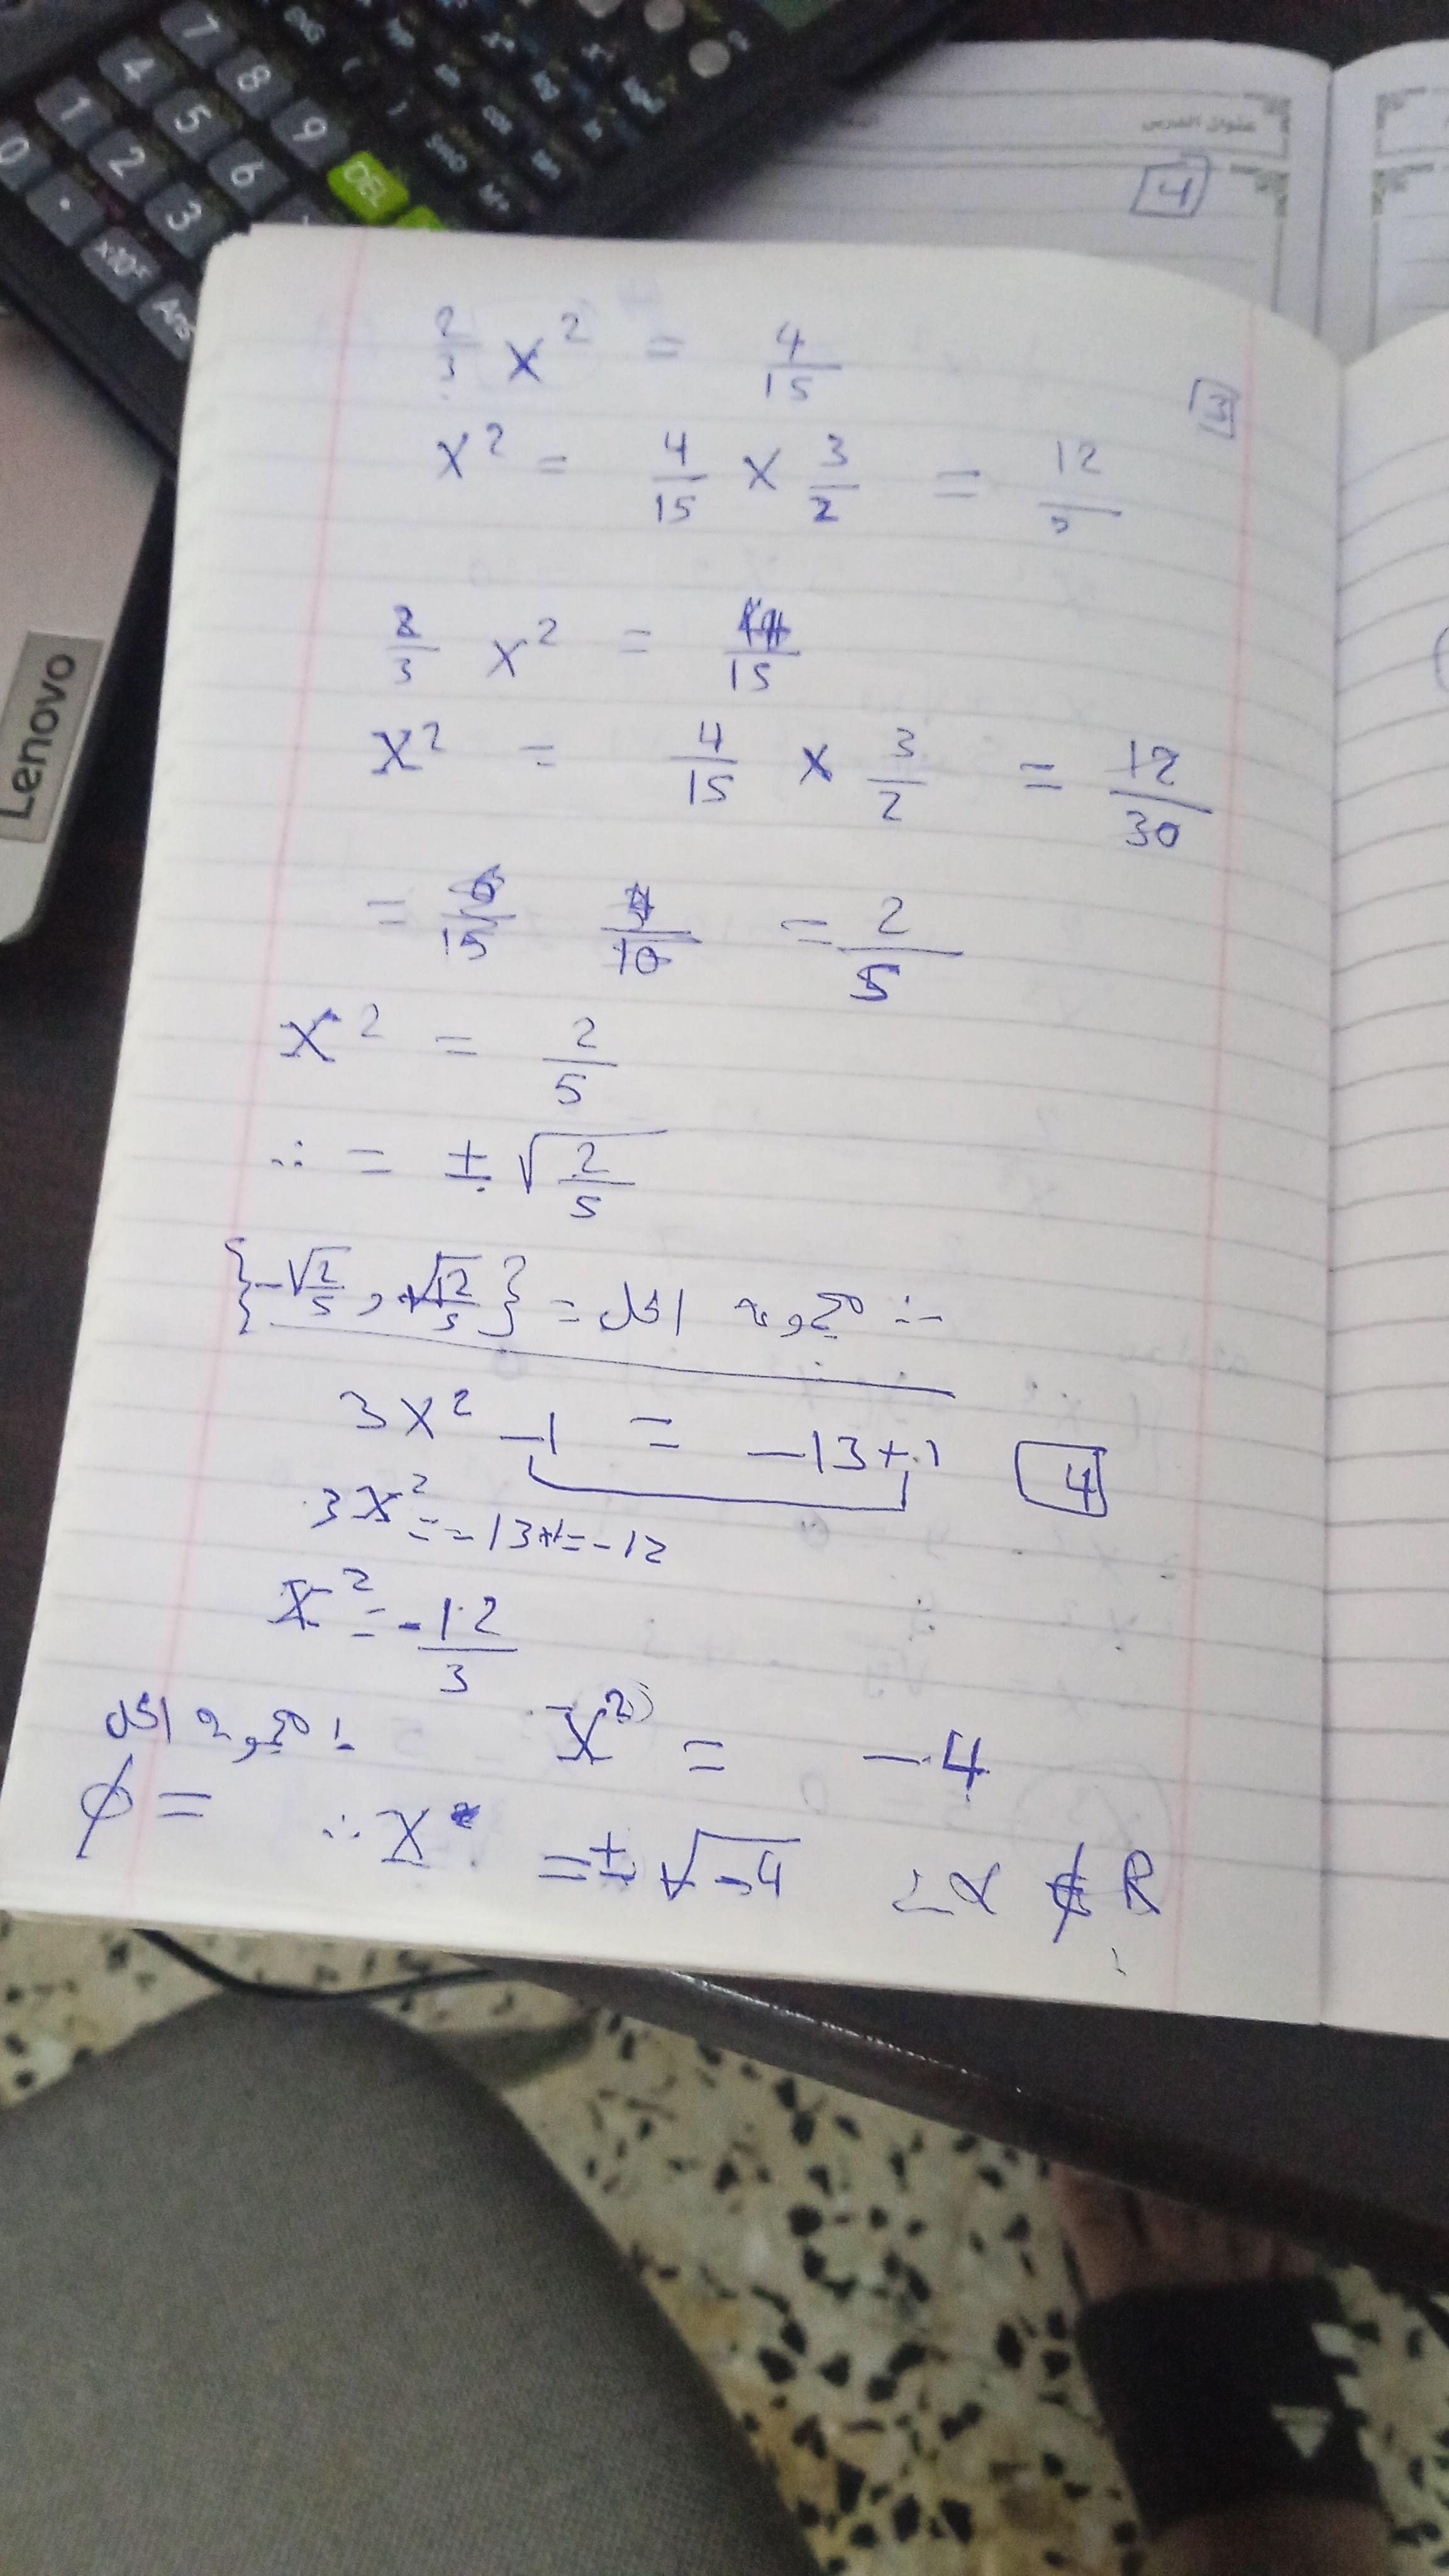 7 8 9 DEL
4 5 6
1 2 3
0 . x10ˣ Ans
Lenovo
عنوان الدرس
4
3
2/3 x² = 4/15
x² = 4/15 × 3/2 = 12/
2/3 x² = 4/15
x² = 4/15 × 3/2 = 12/30
= 6/15 /10 = 2/5
x² = 2/5
∴ = ± √2/5
∴ مجموعة الحل = {-√2/5 , √2/5}
4
3x² -1 = -13+1
3x² = -13+1 = -12
x² = -12/3
x² = -4
∴ x = ± √-4 ∴ x ∉ R
∴ مجموعة الحل
= ϕ